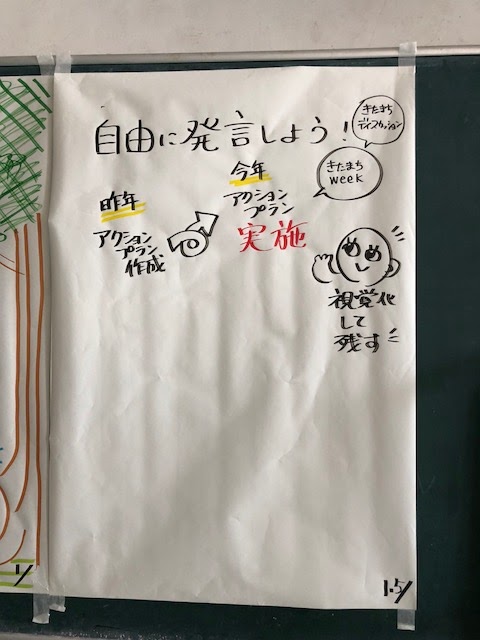 自由に発言しよう!
きたまち
ディスカッション
きたまち
week
昨年
アクション
プラン
作成
今年
アクション
プラン
実施
視覚化
して
残す